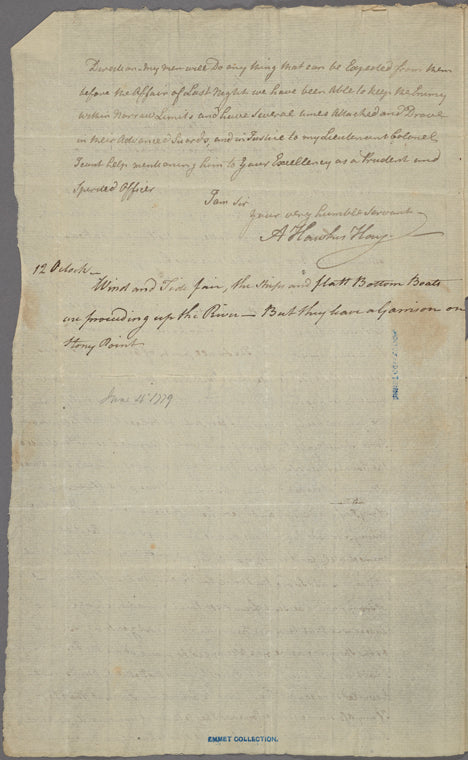 Direction. My men will Do any thing that can be Expected from them
before the Affair of Last Night we have been Able to keep the Enemy
within Narrow Limits and have Several times Attacked and Drove
in their Advanced Guards, and in Justice to my Lieutenant Colonel
I cant help mentioning him to Your Excellency as a Prudent and
Spirited Officer
I am Sir
Your very humble Servant
A Hawkes Hay
12 Oclock—
Wind and Tide fair, the Ships and flatt Bottom Boats
are proceeding up the River — But they have a Garrison on
Stony Point
June 4 1779
EMMET COLLECTION.